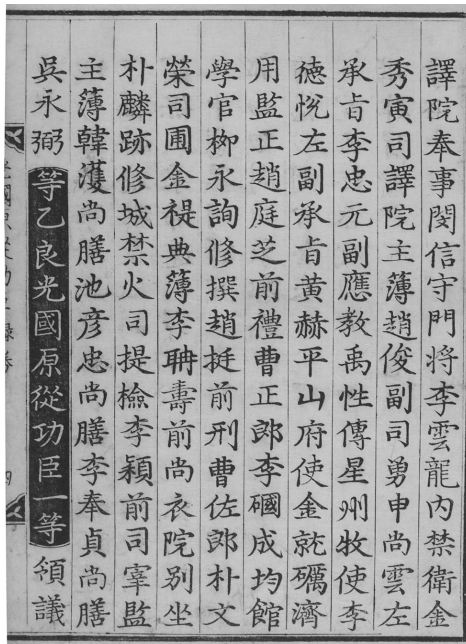 譯院奉事閔信守門將李雲龍內禁衛金
秀寅司譯院主薄趙俊副司勇申尚雲左
承旨李忠元副應教禹性傳星州牧使李
徳悅左副承旨黃赫平山府使金就礪濟
用監正趙庭芝前禮曹正郎李礥成均館
學官柳永詢修撰趙挺前刑曹佐郎朴文
榮司圃金禔典薄李聃壽前尚衣院別坐
朴麟跡修城禁火司提檢李潁前司宰監
主薄韓濩尚膳池彦忠尚膳李奉貞尚膳
吳永弼等乙良光國原從功臣一等領議
光國原從功臣錄券 四